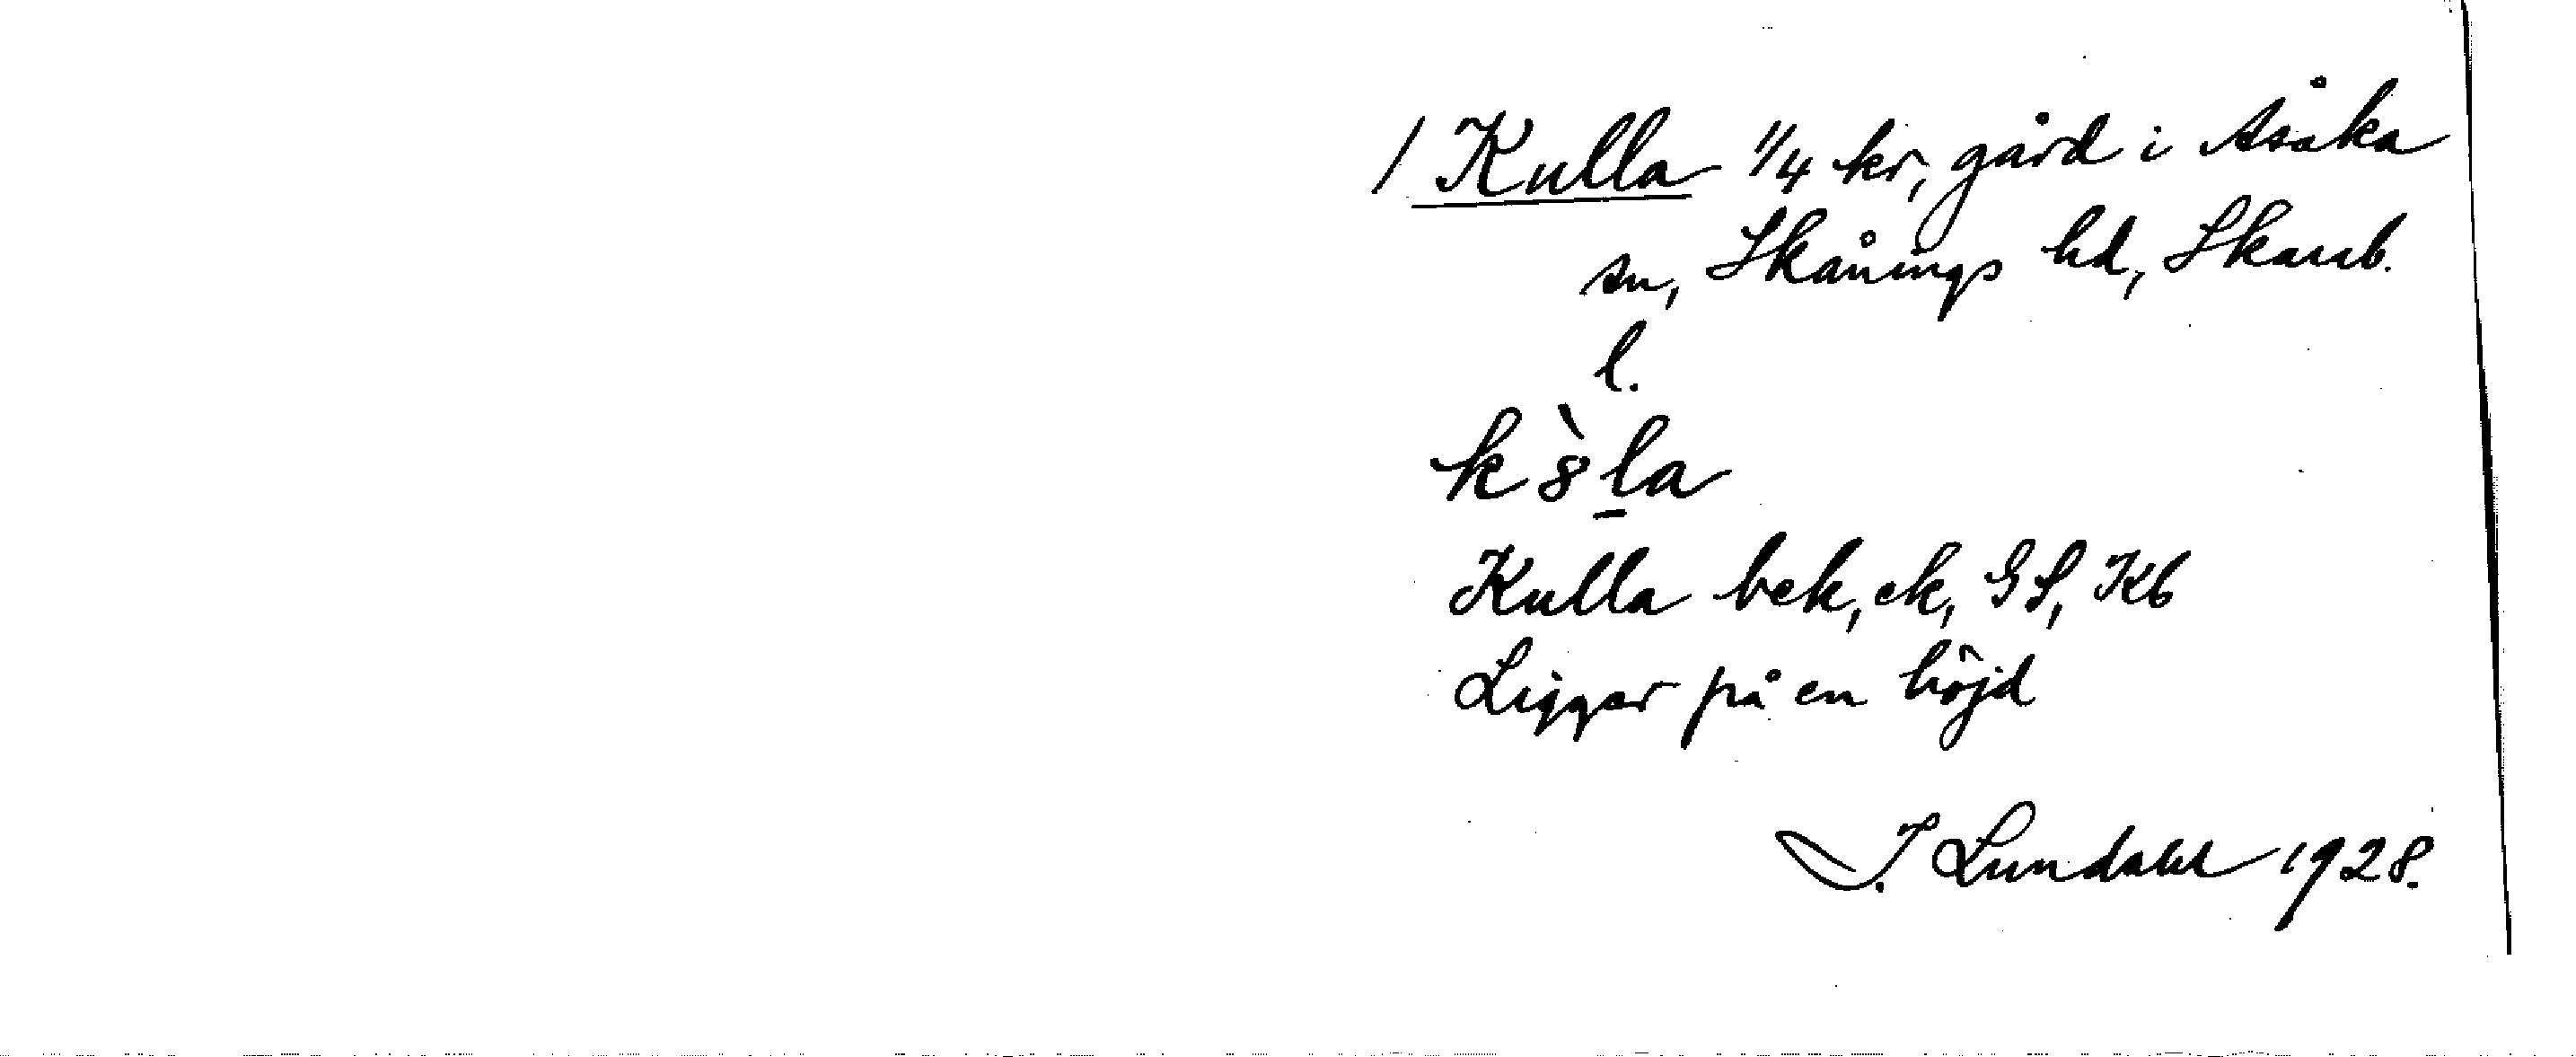 / Kulla 1/4 kr, gård i Åsaka
sn, Skånings hd, Skarab.
l.
k8̀l̠a
Kulla bek, ek, GS, Kb
Ligger på en höjd
I. Lundahl 1928.